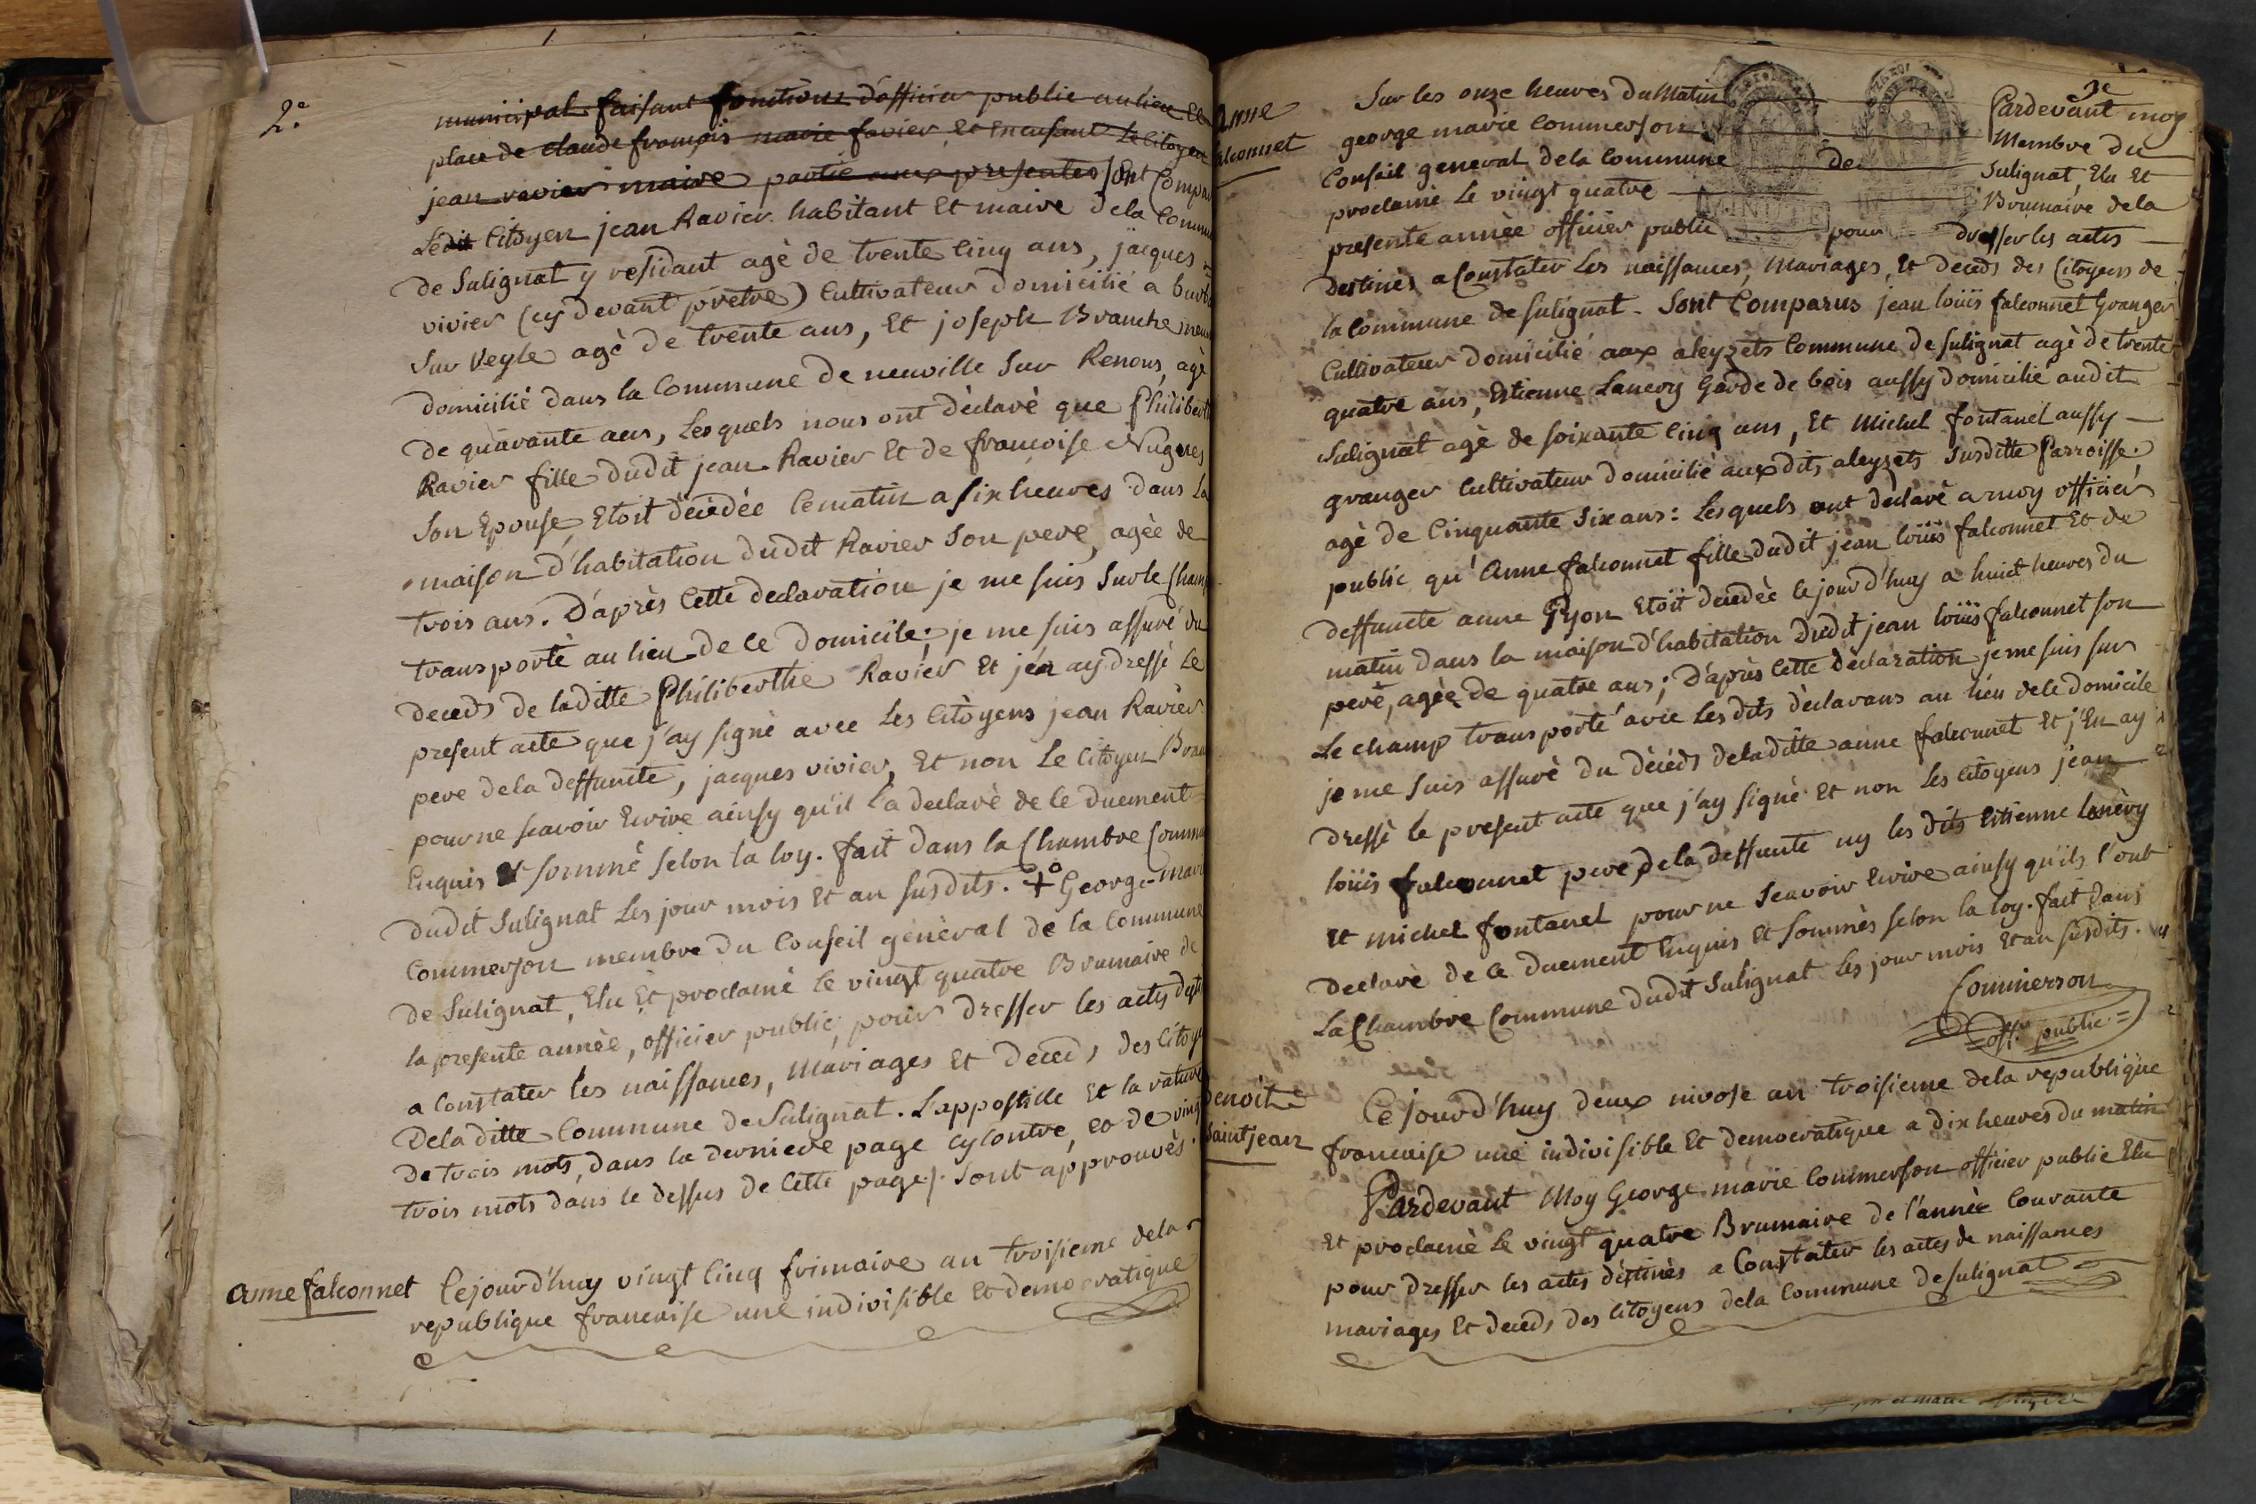 2e
municipal faisant fonctions d'officier public au lieu et
place de claude françois marie favier, et en cusant le Citoyen
jean ravier maire partie aux presentes sont Compar
Ledit Citoyen jean Ravier habitant Et maire dela Commu
de Sulignat y residant agè de trente Cinq ans, jacques
vivier (cy devant prêtre) Cultivateur domicilié a
Sur Veyle agè de trente ans, Et joseph Branche
domicilié dans la Commune de neuville Sur Renons, agè
de quarante ans, Lesquels nous ont dèclarè que Philiberthe
Ravier fille dudit jean Ravier Et de francoise Nugues
Son Epouse, Etoit dècèdèe Cematin a six heures dans La
maison d'habitation dudit Ravier Son pere, agèe de
trois ans. D'après Cette declaration je me suis Sur le Champ
transportè au lieu de ce domicile; je me suis assurè du
deceds de laditte Philiberthe Ravier Et j'en ay dressè Le
present acte que j'ay signè avec Les Citoyens jean Ravier
pere dela deffuncte, jacques vivier, Et non Le Citoyen
pour ne scavoir Ecrire ainsy qu'il l'a declarè de ce duement
Enquis Et sommè selon la loy. fait dans la Chambre Commune
dudit Sulignat Les jour mois Et an susdits. George marie
Commerson membre du Conseil gènèral de la Commune
de Sulignat, Elu Et proclamè le vingt quatre Brumaire de
la presente annèe, officier public, pour dresser les actes
a Constater les naissances, Mariages Et Deceds des Citoy
dela ditte Commune de Sulignat. L'appostille Et la rature
de trois mots, dans la derniere page cy contre, et de vingt
trois mots dans le dessus de Cette page. sont approuvès.
anne falconnet
Cejourd'huy vingt Cinq frimaire an troisieme dela
republique francaise une indivisible Et democratique
3e
Anne
falconnet
Sur les onze heures du Matin Pardevant moy
george marie Commerson Membre du
Conseil general dela Commune de Sulignat, Elu Et
proclamè Le vingt quatre Brumaire dela
presente annèe officier public pour dresser les actes
MINUTE
destinès a Constater Les naissances, Mariages, Et deceds des Citoyens de
la Commune de Sulignat. Sont Comparus jean loüis falconnet Granger
Cultivateur domicilié aux aleyzets Commune de Sulignat agè de trente
quatre ans, Estienne Lanery Garde de bois aussy domicilié audit
Sulignat agè de soixante Cinq ans, Et Michel fontanel aussy
granger Cultivateur domicilié aux dits aleyzets Susditte Parroisse.
agè de Cinquante Six ans: Lesquels ont declarè a moy officier
public qu'Anne falconnet fille dudit jean loüis falconnet Et de
deffuncte anne Pyon Etoit decèdèe Cejourd'huy a huict heures du
matin dans la maison d'habitation dudit jean loüis falconnet son
perè, agèe de quatre ans; D'après Cette declaration je me suis sur
Le champ transportè avec Lesdits dèclarans au lieu de ce domicile
je me suis assurè du dècèds de laditte anne falconnet Et j'En ay
dressè le present acte que j'ay signè Et non Les Citoyens jean
loüis falconnet pere dela deffunte ny les dits Estienne Lanery
Et michel fontanel pour ne Scavoir Ecrire ainsy qu'ils l'ont
declarè de ce duement Enquis Et sommès selon la loy. fait dans
La Chambre Commune dudit Sulignat les jour mois Et an susdits.
Commerson
off. public
Benoit
Saintjean
Cejourd'huy deux nivose an troisieme dela republique
francaise une indivisible Et democratique a dix heures du matin
Pardevant Moy George marie Commerson officier public Elu
Et proclamè Le vingt quatre Brumaire de l'annèe Courante
pour dresser les actes dèstinès a Constater les actes de naissances
mariages Et deceds des Citoyens dela Commune de Sulignat